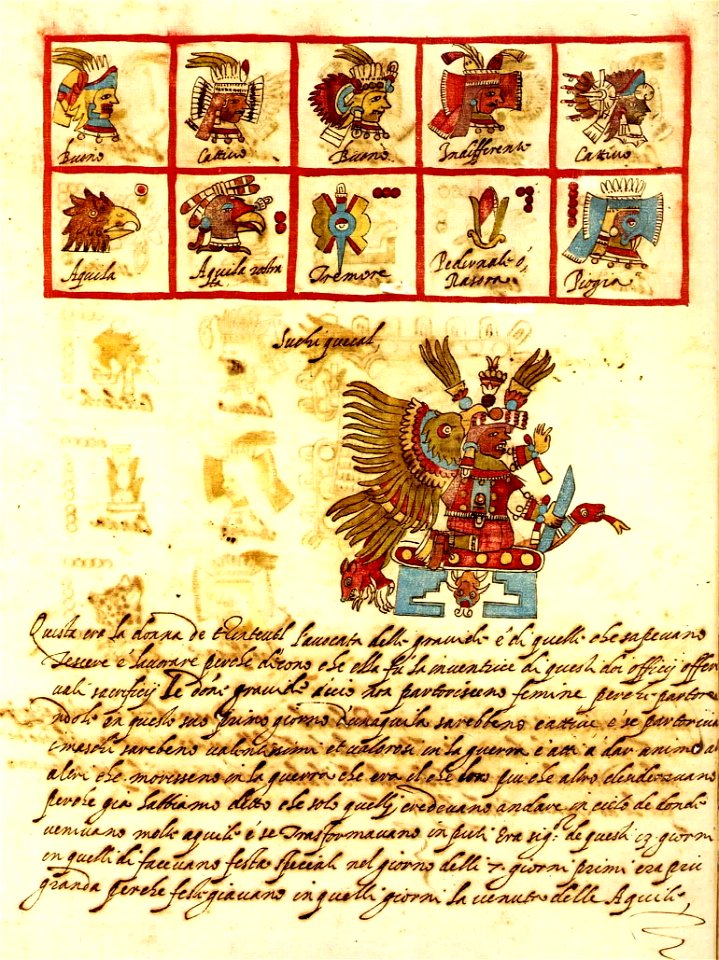 Buono Cattivo Buono Indifferente Cattivo
Aquila Aquila Tremore Pedernale ó Rasora Piogia
Suchiquecal
Questa era la donna de l'avocata delle gravide é di quelle che sapevano
tescere é lavorare perche dicono che ella fu la inventrice di questi doi officij
sacrificij le gravide non partorisseno femine perche
in questo suo primo giorno d'una quila sarebbeno cattive é se
i maschi sarebeno valentissimi et valorosi in la guerra é atti á dar animo
altri che morisseno in la guerra che era el che piu che altro
perche gia habbiamo detto che solo quelli credevano andare in cielo de donde
venivano molte aquile é se trasformavano in puti Era sig.re de questi 13 giorni
in quelli di facevano festa special nel giorno delli 7 giorni primi era piu
granda perche festigiavano in quelli giorni la venuta delle Aquile